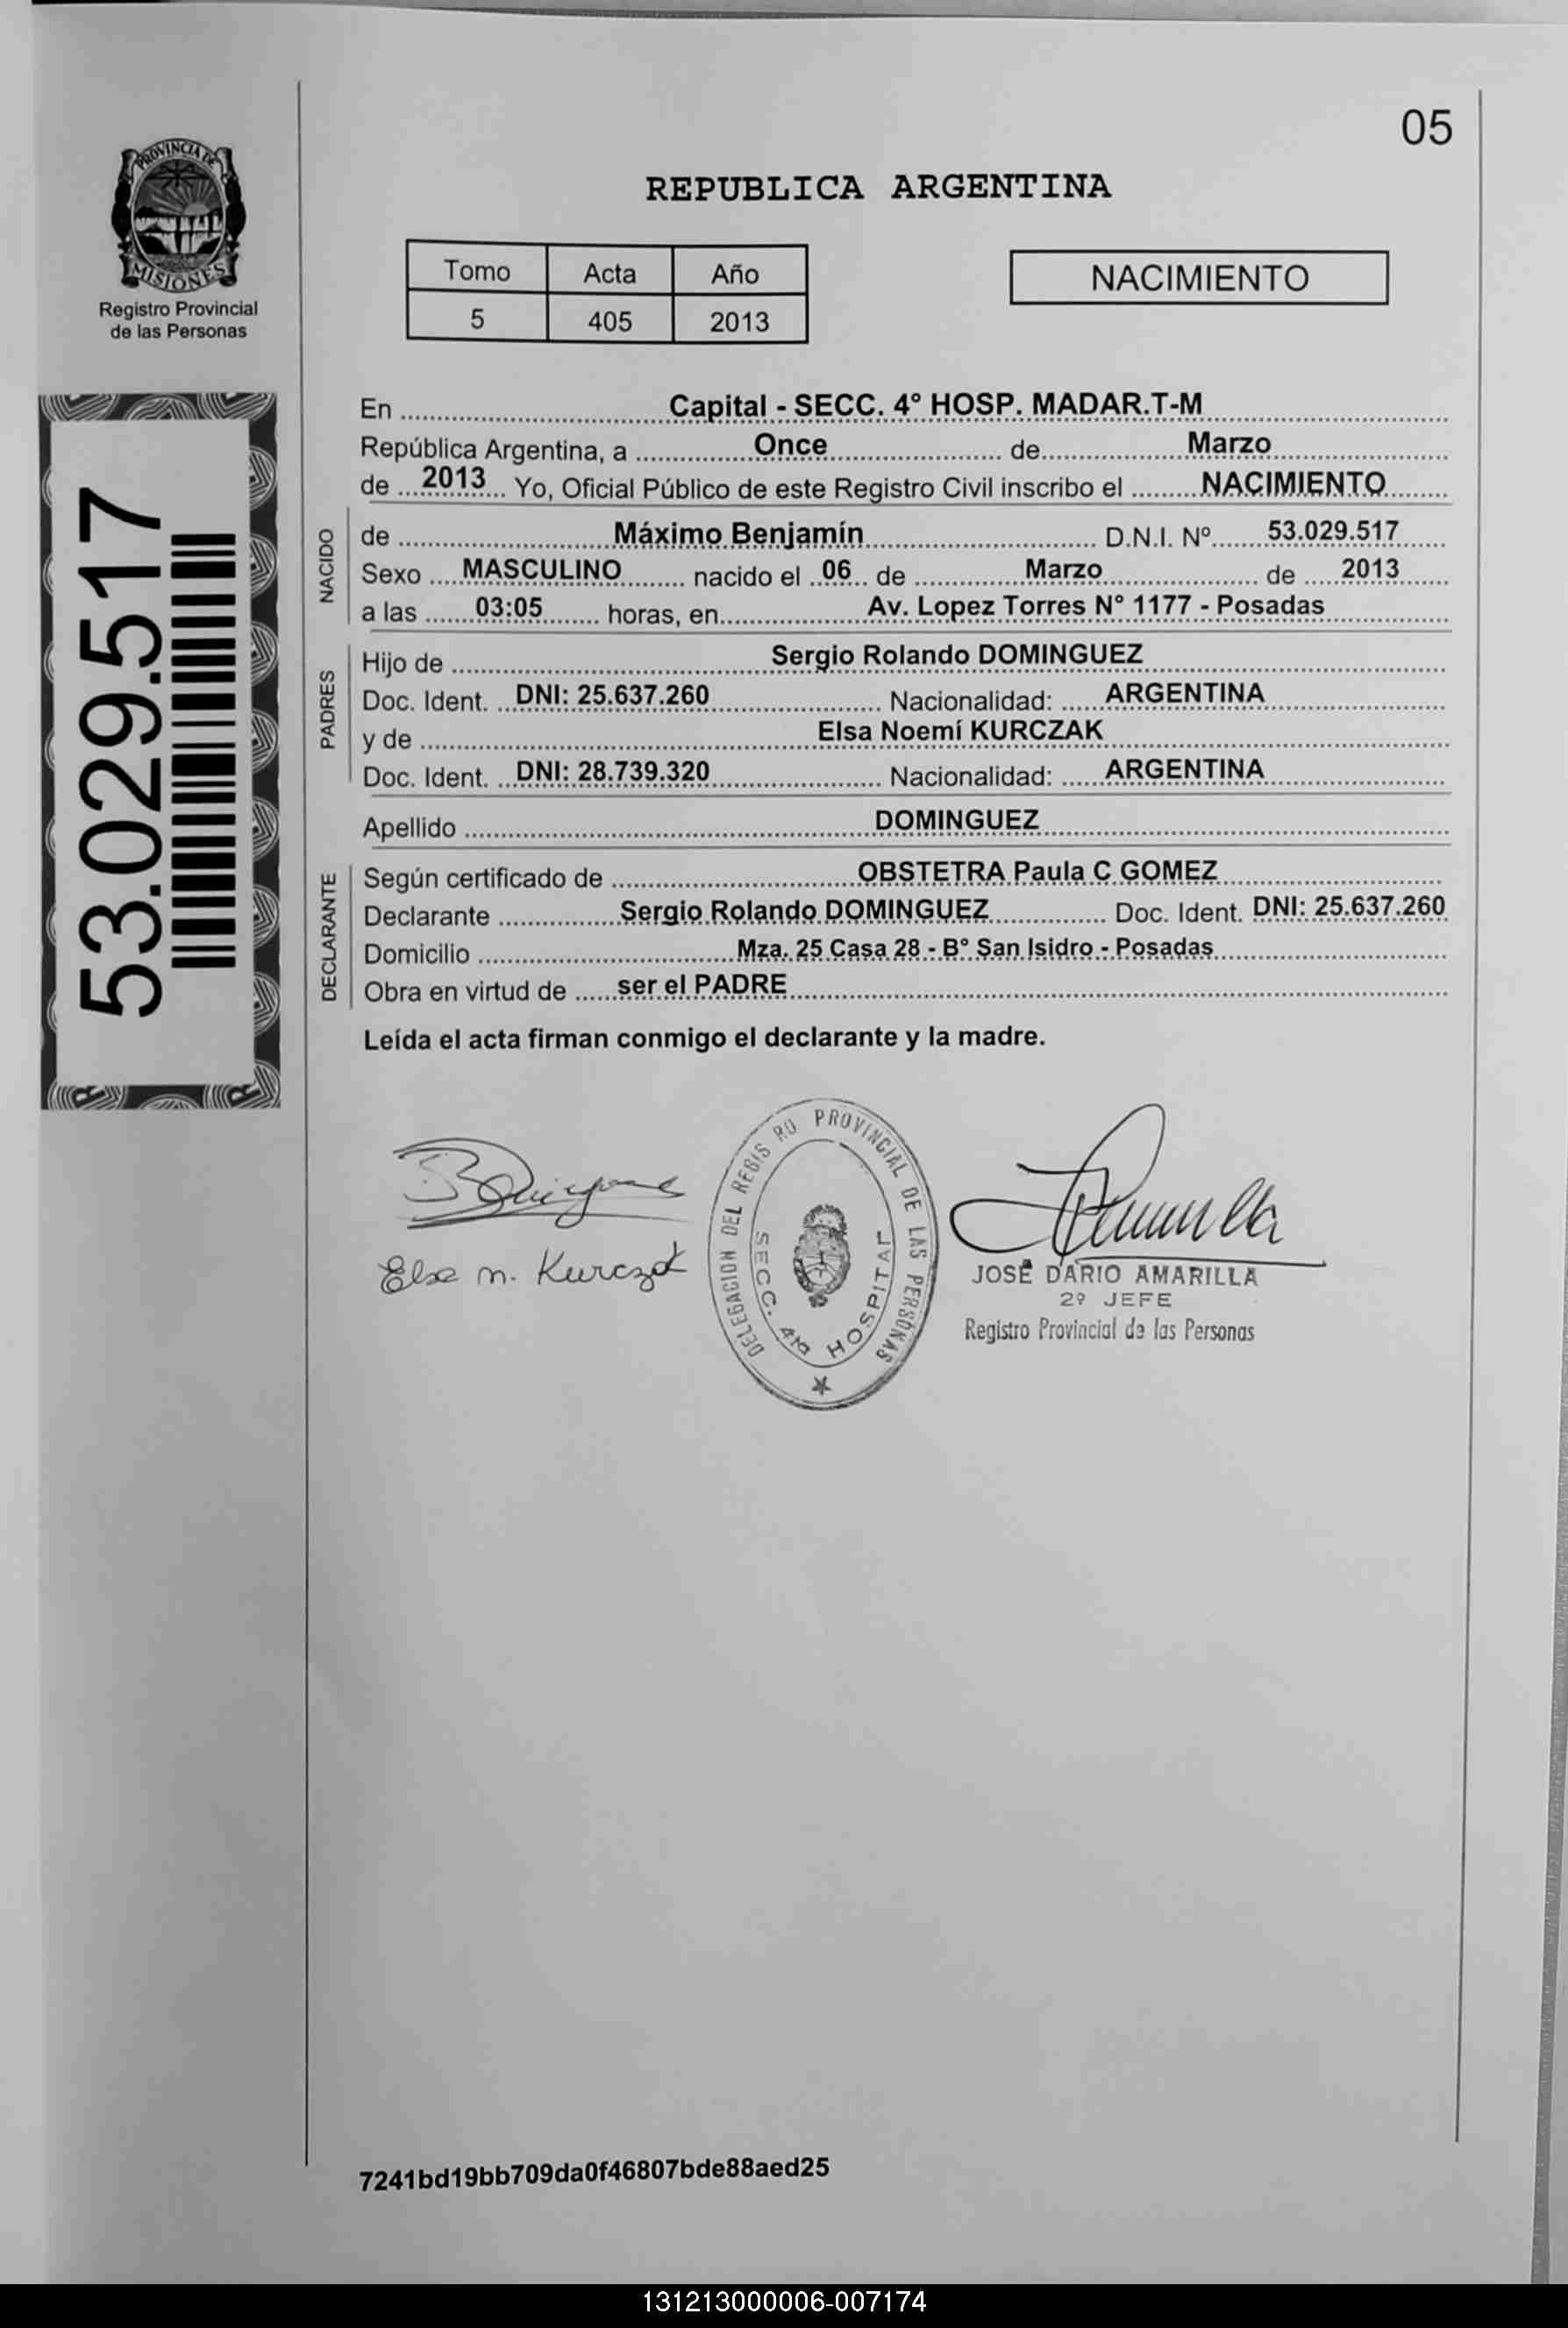 05
PROVINCIA DE
MISIONES
Registro Provincial
de las Personas
REPUBLICA ARGENTINA
Tomo Acta Año
5 405 2013
NACIMIENTO
53.029.517
En Capital - SECC. 4° HOSP. MADAR.T-M
República Argentina, a Once de Marzo
de 2013 Yo, Oficial Público de este Registro Civil inscribo el NACIMIENTO
NACIDO
de Máximo Benjamín D.N.I. Nº 53.029.517
Sexo MASCULINO nacido el 06 de Marzo de 2013
a las 03:05 horas, en Av. Lopez Torres N° 1177 - Posadas
PADRES
Hijo de Sergio Rolando DOMINGUEZ
Doc. Ident. DNI: 25.637.260 Nacionalidad: ARGENTINA
y de Elsa Noemí KURCZAK
Doc. Ident. DNI: 28.739.320 Nacionalidad: ARGENTINA
Apellido DOMINGUEZ
DECLARANTE
Según certificado de OBSTETRA Paula C GOMEZ
Declarante Sergio Rolando DOMINGUEZ Doc. Ident. DNI: 25.637.260
Domicilio Mza. 25 Casa 28 - B° San Isidro - Posadas
Obra en virtud de ser el PADRE
Leída el acta firman conmigo el declarante y la madre.
Elsa N. Kurczak
DELEGACION DEL REGIS RO PROVINCIAL DE LAS PERSONAS
SECC. 4ta HOSPITAL
JOSÉ DARIO AMARILLA
2º JEFE
Registro Provincial de las Personas
7241bd19bb709da0f46807bde88aed25
131213000006-007174